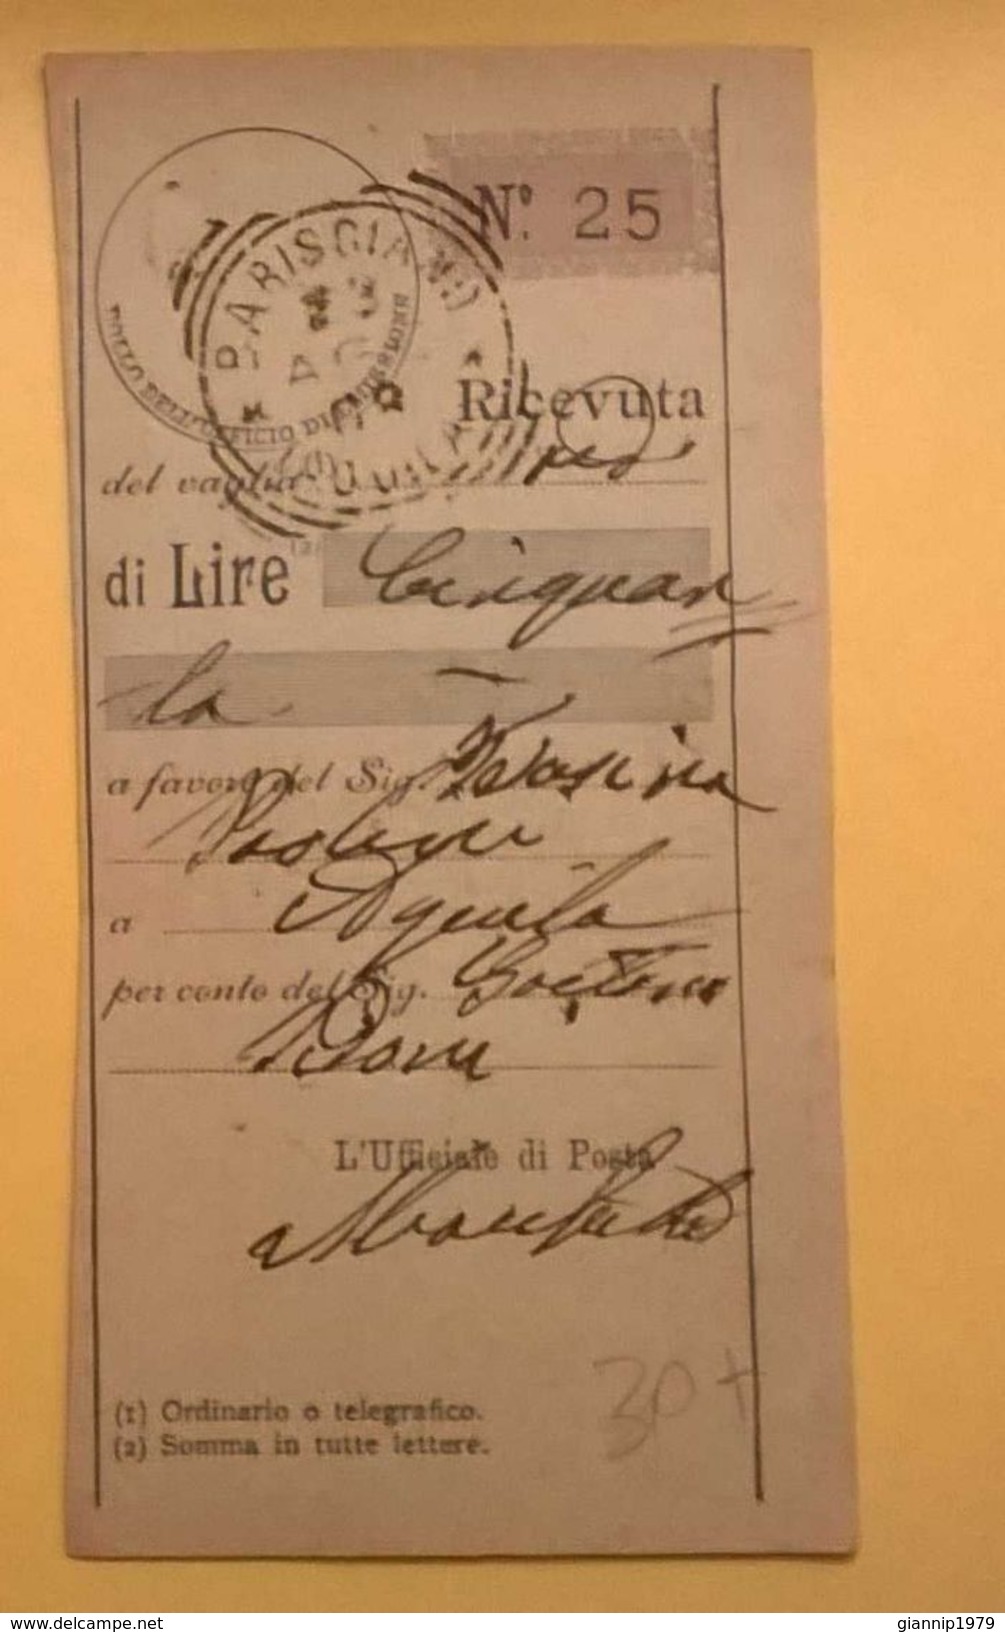 Nº. 25
BARISCIANO
BOLLO DELL'UFFICIO DI EMISSIONE
Ricevuta
del vaglia
(2)
di Lire Cinquan
ta
a favore del Sig.
a Aquila
per conto del Sig. Gaetano
L'Ufficiale di Posta
30+
(1) Ordinario o telegrafico.
(2) Somma in tutte lettere.
delcampe.net
giannip1979